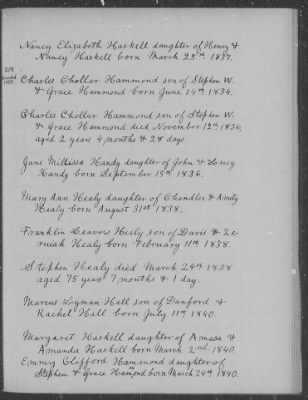 Nancy Elizabeth Haskell daughter of Henry &
Nancy Haskell born March 25th 1837.
Charles Chollar Hammond son of Stephen W.
& Grace Hammond born June 14th 1834.
Charles Chollar Hammond son of Stephen W.
& Grace Hammond died November 12th 1836,
aged 2 years 4 months & 28 days.
Jane Millissa Handy daughter of John & Lucy
Handy born September 15th 1836.
Mary Ann Healy daughter of Chandler & Amity
Healy born August 31st 1838.
Franklin Leavens Healy son of Davis & Ze-
ruiah Healy born February 11th 1838.
Stephen Healy died March 24th 1838
aged 75 years 7 months & 1 day.
Marcus Lyman Hall son of Danford &
Rachel Hall born July 11th 1840.
Margaret Haskell daughter of Amasa &
Amanda Haskell born March 2nd 1840
Emmy Clifford Hammond daughter of
Stephen & Grace Hammond born March 24th 1840.